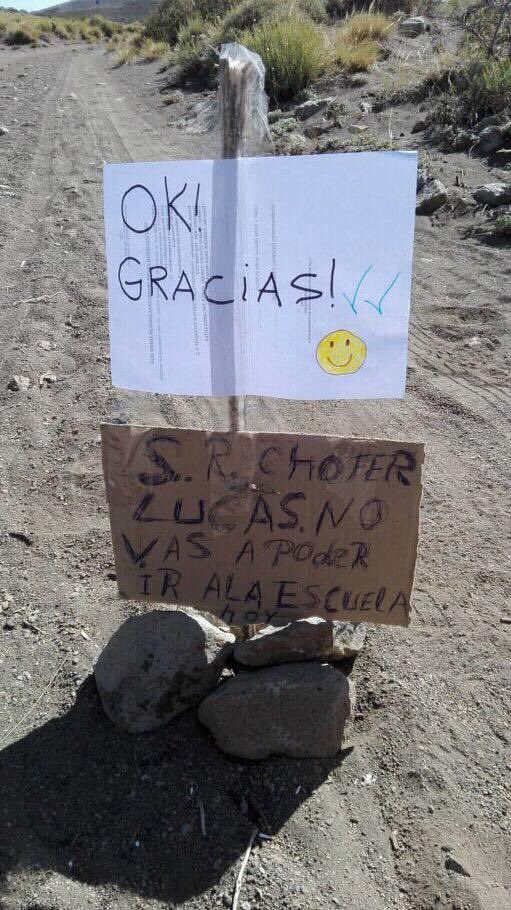 OK!
GRACiAS!
S. R. CHOFER
LUCAS. NO
VAS A PODER
IR A LA ESCUELA
hoy